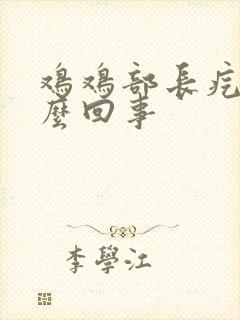 鸡鸡部長疙
麼回事
李學江